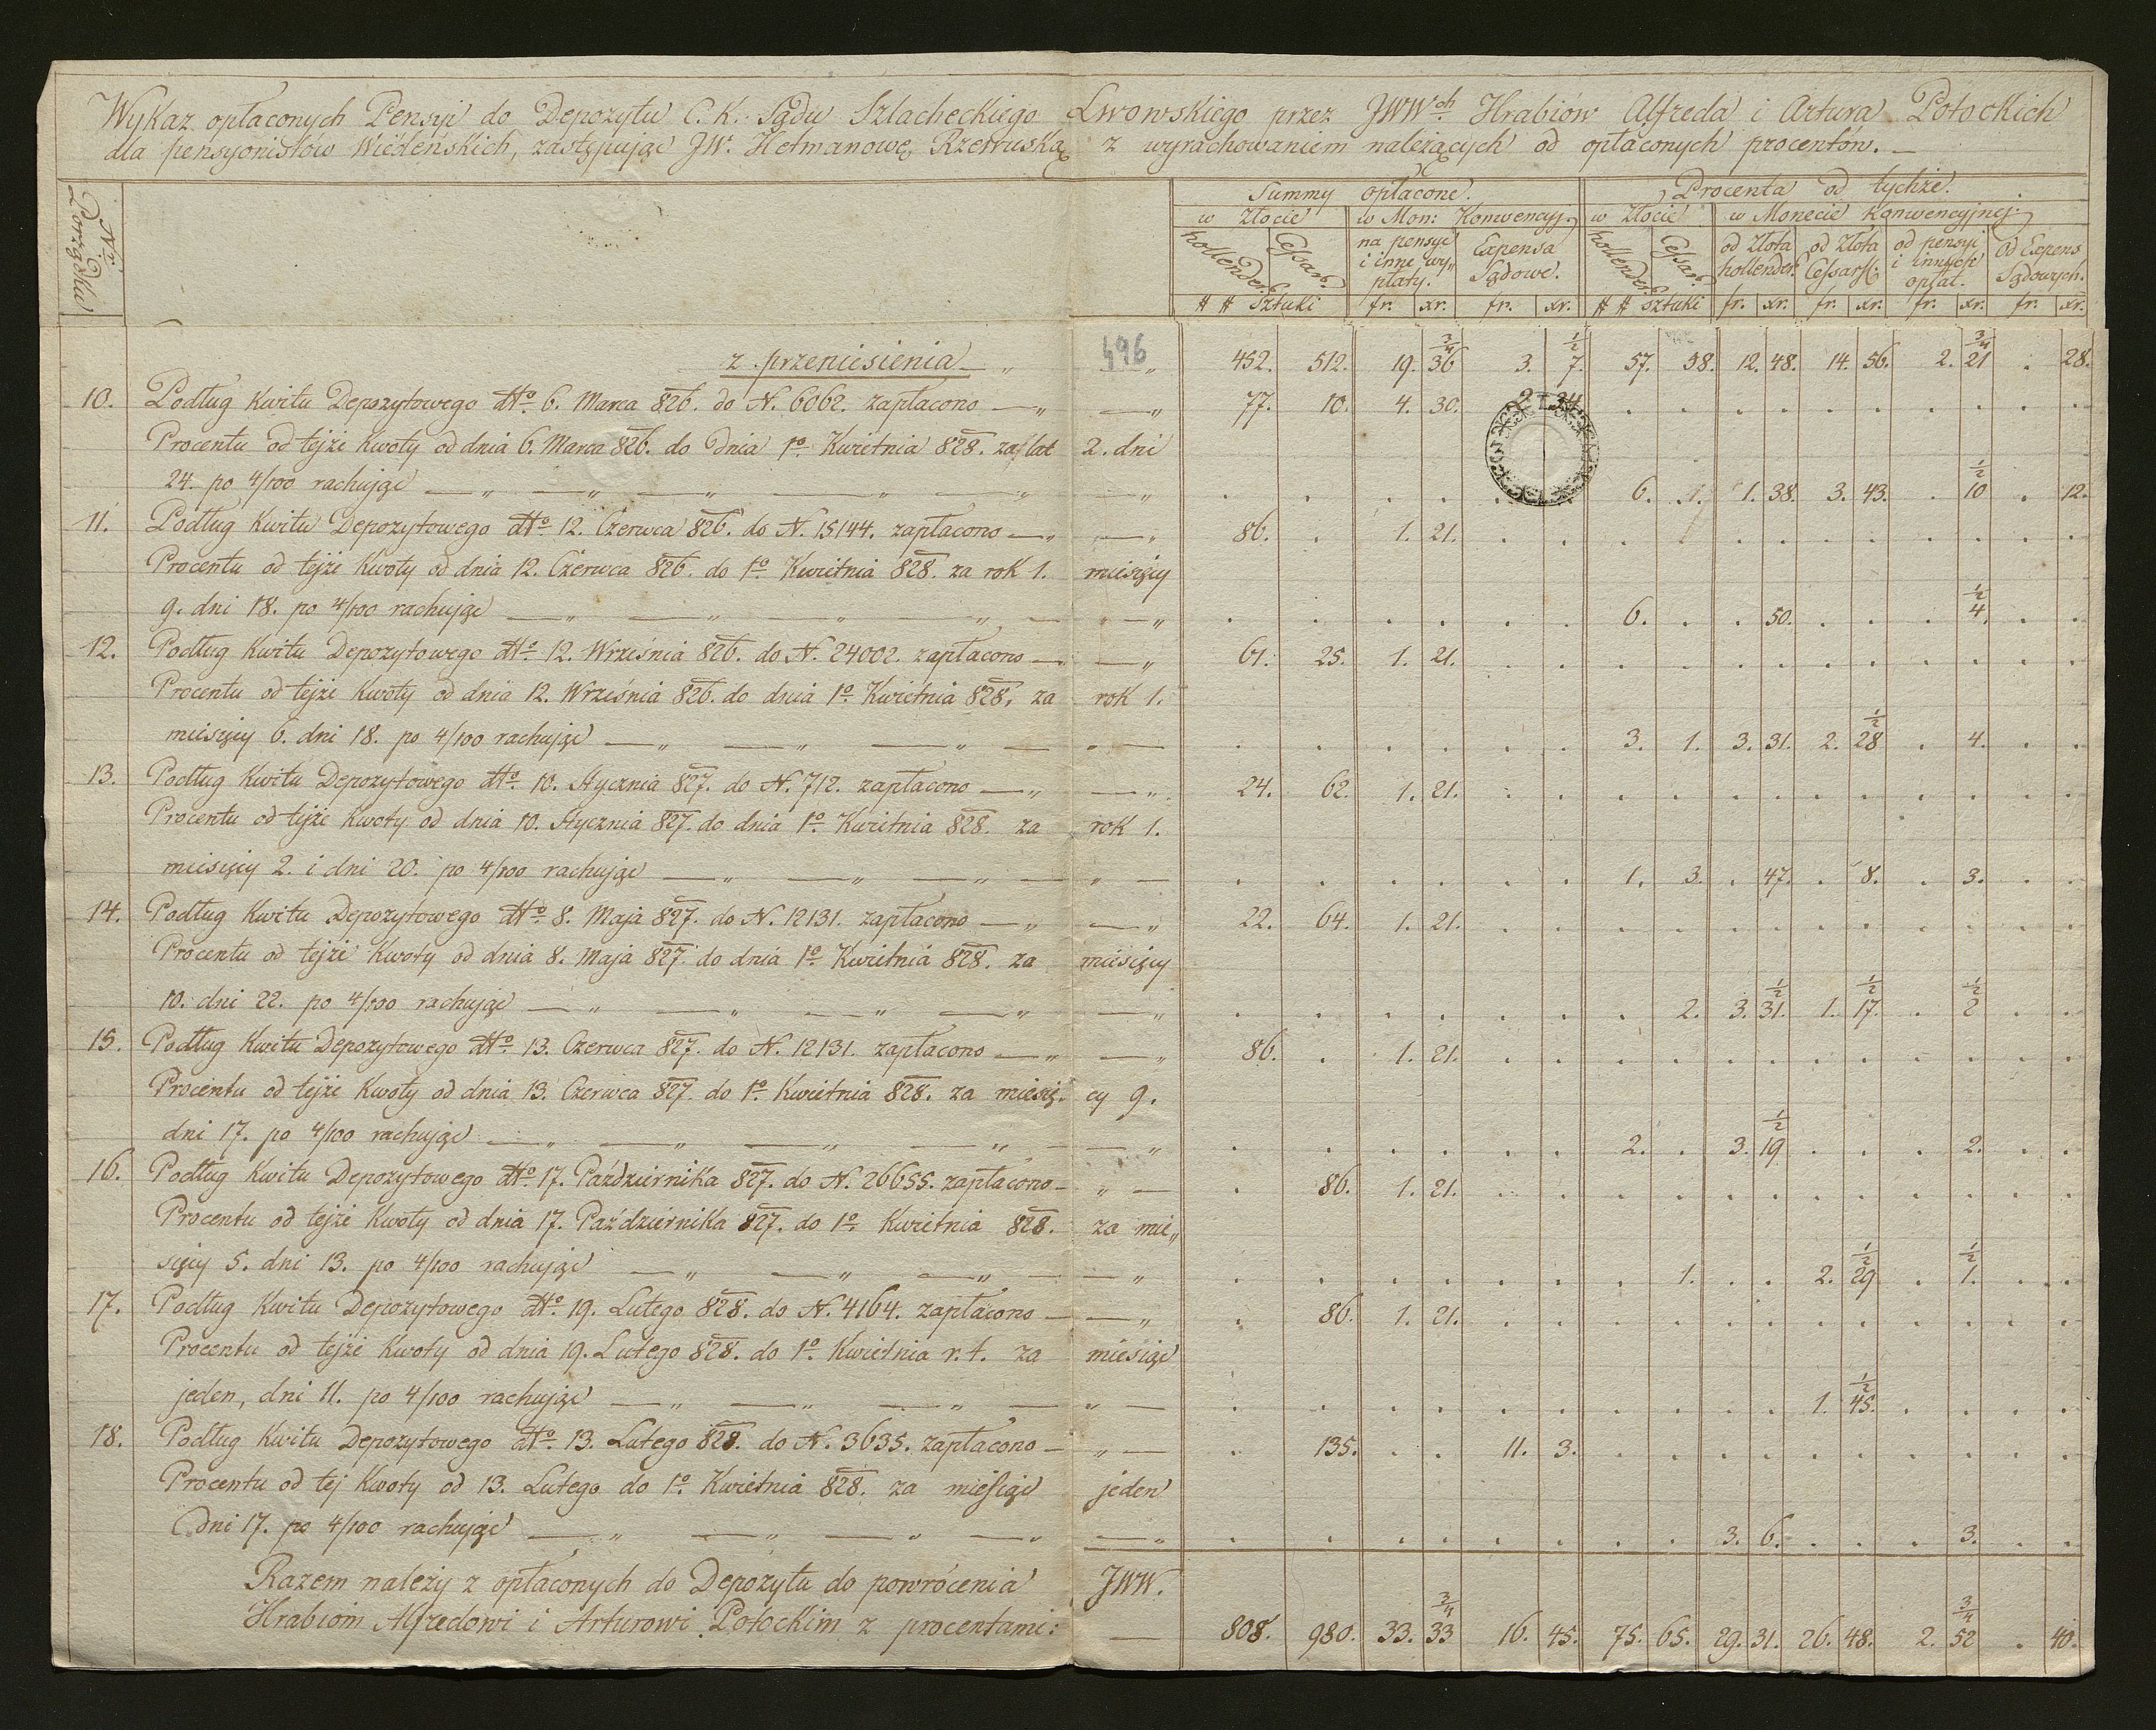 Wykaz opłaconych Pensyi do Depozytu C. K. Sądu Szlacheckiego Lwowskiego przez JWWch Hrabiów Alfreda i Artura Potockich
dla pensyonistów Wiédeńskich, zastępując JW. Hetmanowę Rzewuską z wyrachowaniem należących od opłaconych procentów. —
Nr. Porządku
Summy opłacone. Procenta od tychże.
w Złocie w Mon: Konwencyj. w Złocie w Monecie Konwencyjnej.
hollender. Cessar. na pensye i inne wypłaty. Expensa Sądowe. hollender. Cessar. od Złota hollender. od Złota Cessarsk. od pensyi i innych opłat. Od Expens Sądowych.
# # Sztuki fr. xr. fr. xr. # # Sztuki fr. xr. fr. xr. fr. xr. fr. xr.
496
z przeniesienia — 452. 512. 19. 36 3/4 3. 7. 1/2 57. 38. 12. 48. 14. 56. 2. 21 3/4 . 28.
10. Podług Kwitu Depozytowego dtto 6. Marca 826. do N. 6062. zapłacono — 77. 10. 4. 30. 2. 34
Procentu od tejże Kwoty od dnia 6. Marca 826. do Dnia 1o Kwietnia 828. za lat 2. dni
24. po 4/100 rachując — 6. 1. 1. 38. 3. 43. . 10 1/2 . 12.
11. Podług Kwitu Depozytowego dtto 12. Czerwca 826. do N. 15144. zapłacono — 86. . 1. 21.
Procentu od tejże Kwoty od dnia 12. Czerwca 826. do 1o Kwietnia 828. za rok 1. miesięcy
9. dni 18. po 4/100 rachując — 6. . . 50. . . . 4. 1/2
12. Podług Kwitu Depozytowego dtto 12. Września 826. do N. 24002. zapłacono — 61. 25. 1. 21.
Procentu od tejże Kwoty od dnia 12. Września 826. do dnia 1o Kwietnia 828. za rok 1.
miesięcy 6. dni 18. po 4/100 rachując — 3. 1. 3. 31. 2. 28 1/2 . 4.
13. Podług Kwitu Depozytowego dtto 10. Stycznia 827. do N. 712. zapłacono — 24. 62. 1. 21.
Procentu od tejże Kwoty od dnia 10. Stycznia 827. do dnia 1o Kwietnia 828. za rok 1.
miesięcy 2. i dni 20. po 4/100 rachując — 1. 3. . 47. . 8. . 3.
14. Podług Kwitu Depozytowego dtto 8. Maja 827. do N. 12131. zapłacono — 22. 64. 1. 21.
Procentu od tejże Kwoty od dnia 8. Maja 827. do dnia 1o Kwietnia 828. za miesięcy
10. dni 22. po 4/100 rachując — . 2. 3. 31. 1/2 1. 17. 1/2 . 2 1/2
15. Podług Kwitu Depozytowego dtto 13. Czerwca 827. do N. 12131. zapłacono — 86. . 1. 21.
Procentu od tejże Kwoty od dnia 13. Czerwca 827. do 1o Kwietnia 828. za miesięcy 9.
dni 17. po 4/100 rachując — 2. . 3. 19 1/2 . . . 2.
16. Podług Kwitu Depozytowego dtto 17. Października 827. do N. 26655. zapłacono — . 86. 1. 21.
Procentu od tejże Kwoty od dnia 17. Października 827. do 1o Kwietnia 828. za mie„
sięcy 5. dni 13. po 4/100 rachując — . 1. . . 2. 29 1/2 . 1. 1/2
17. Podług Kwitu Depozytowego dtto 19. Lutego 828. do N. 4164. zapłacono — . 86. 1. 21.
Procentu od tejże Kwoty od dnia 19. Lutego 828. do 1o Kwietnia r. t. za miesiąc
jeden, dni 11. po 4/100 rachując — 1. 45. 1/2
18. Podług Kwitu Depozytowego dtto 13. Lutego 828. do N. 3635. zapłacono — . 135. . . 11. 3.
Procentu od tej Kwoty od 13. Lutego do 1o Kwietnia 828. za miesiąc jeden
dni 17. po 4/100 rachując — 3. 6. . . . 3.
Razem należy z opłaconych do Depozytu do powrócenia JWW.
Hrabiom Alfredowi i Arturowi Potockim z procentami: — 808. 980. 33. 33 3/4 16. 45. 75. 65. 29. 31. 26. 48. 2. 52 3/4 . 40.